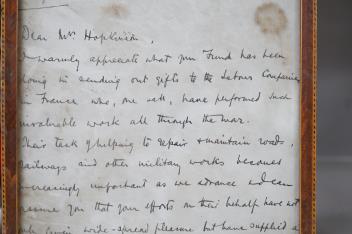 Dear Mrs Hopkinson,
I warmly appreciate what your Fund has been
doing in sending out gifts to the Labour Companies
in France who, one and all, have performed such
invaluable work all through the war.
Their task of helping to repair & maintain roads,
railways and other military works becomes
increasingly important as we advance & I can
assure you that your efforts on their behalf have not
only given wide-spread pleasure but have supplied a